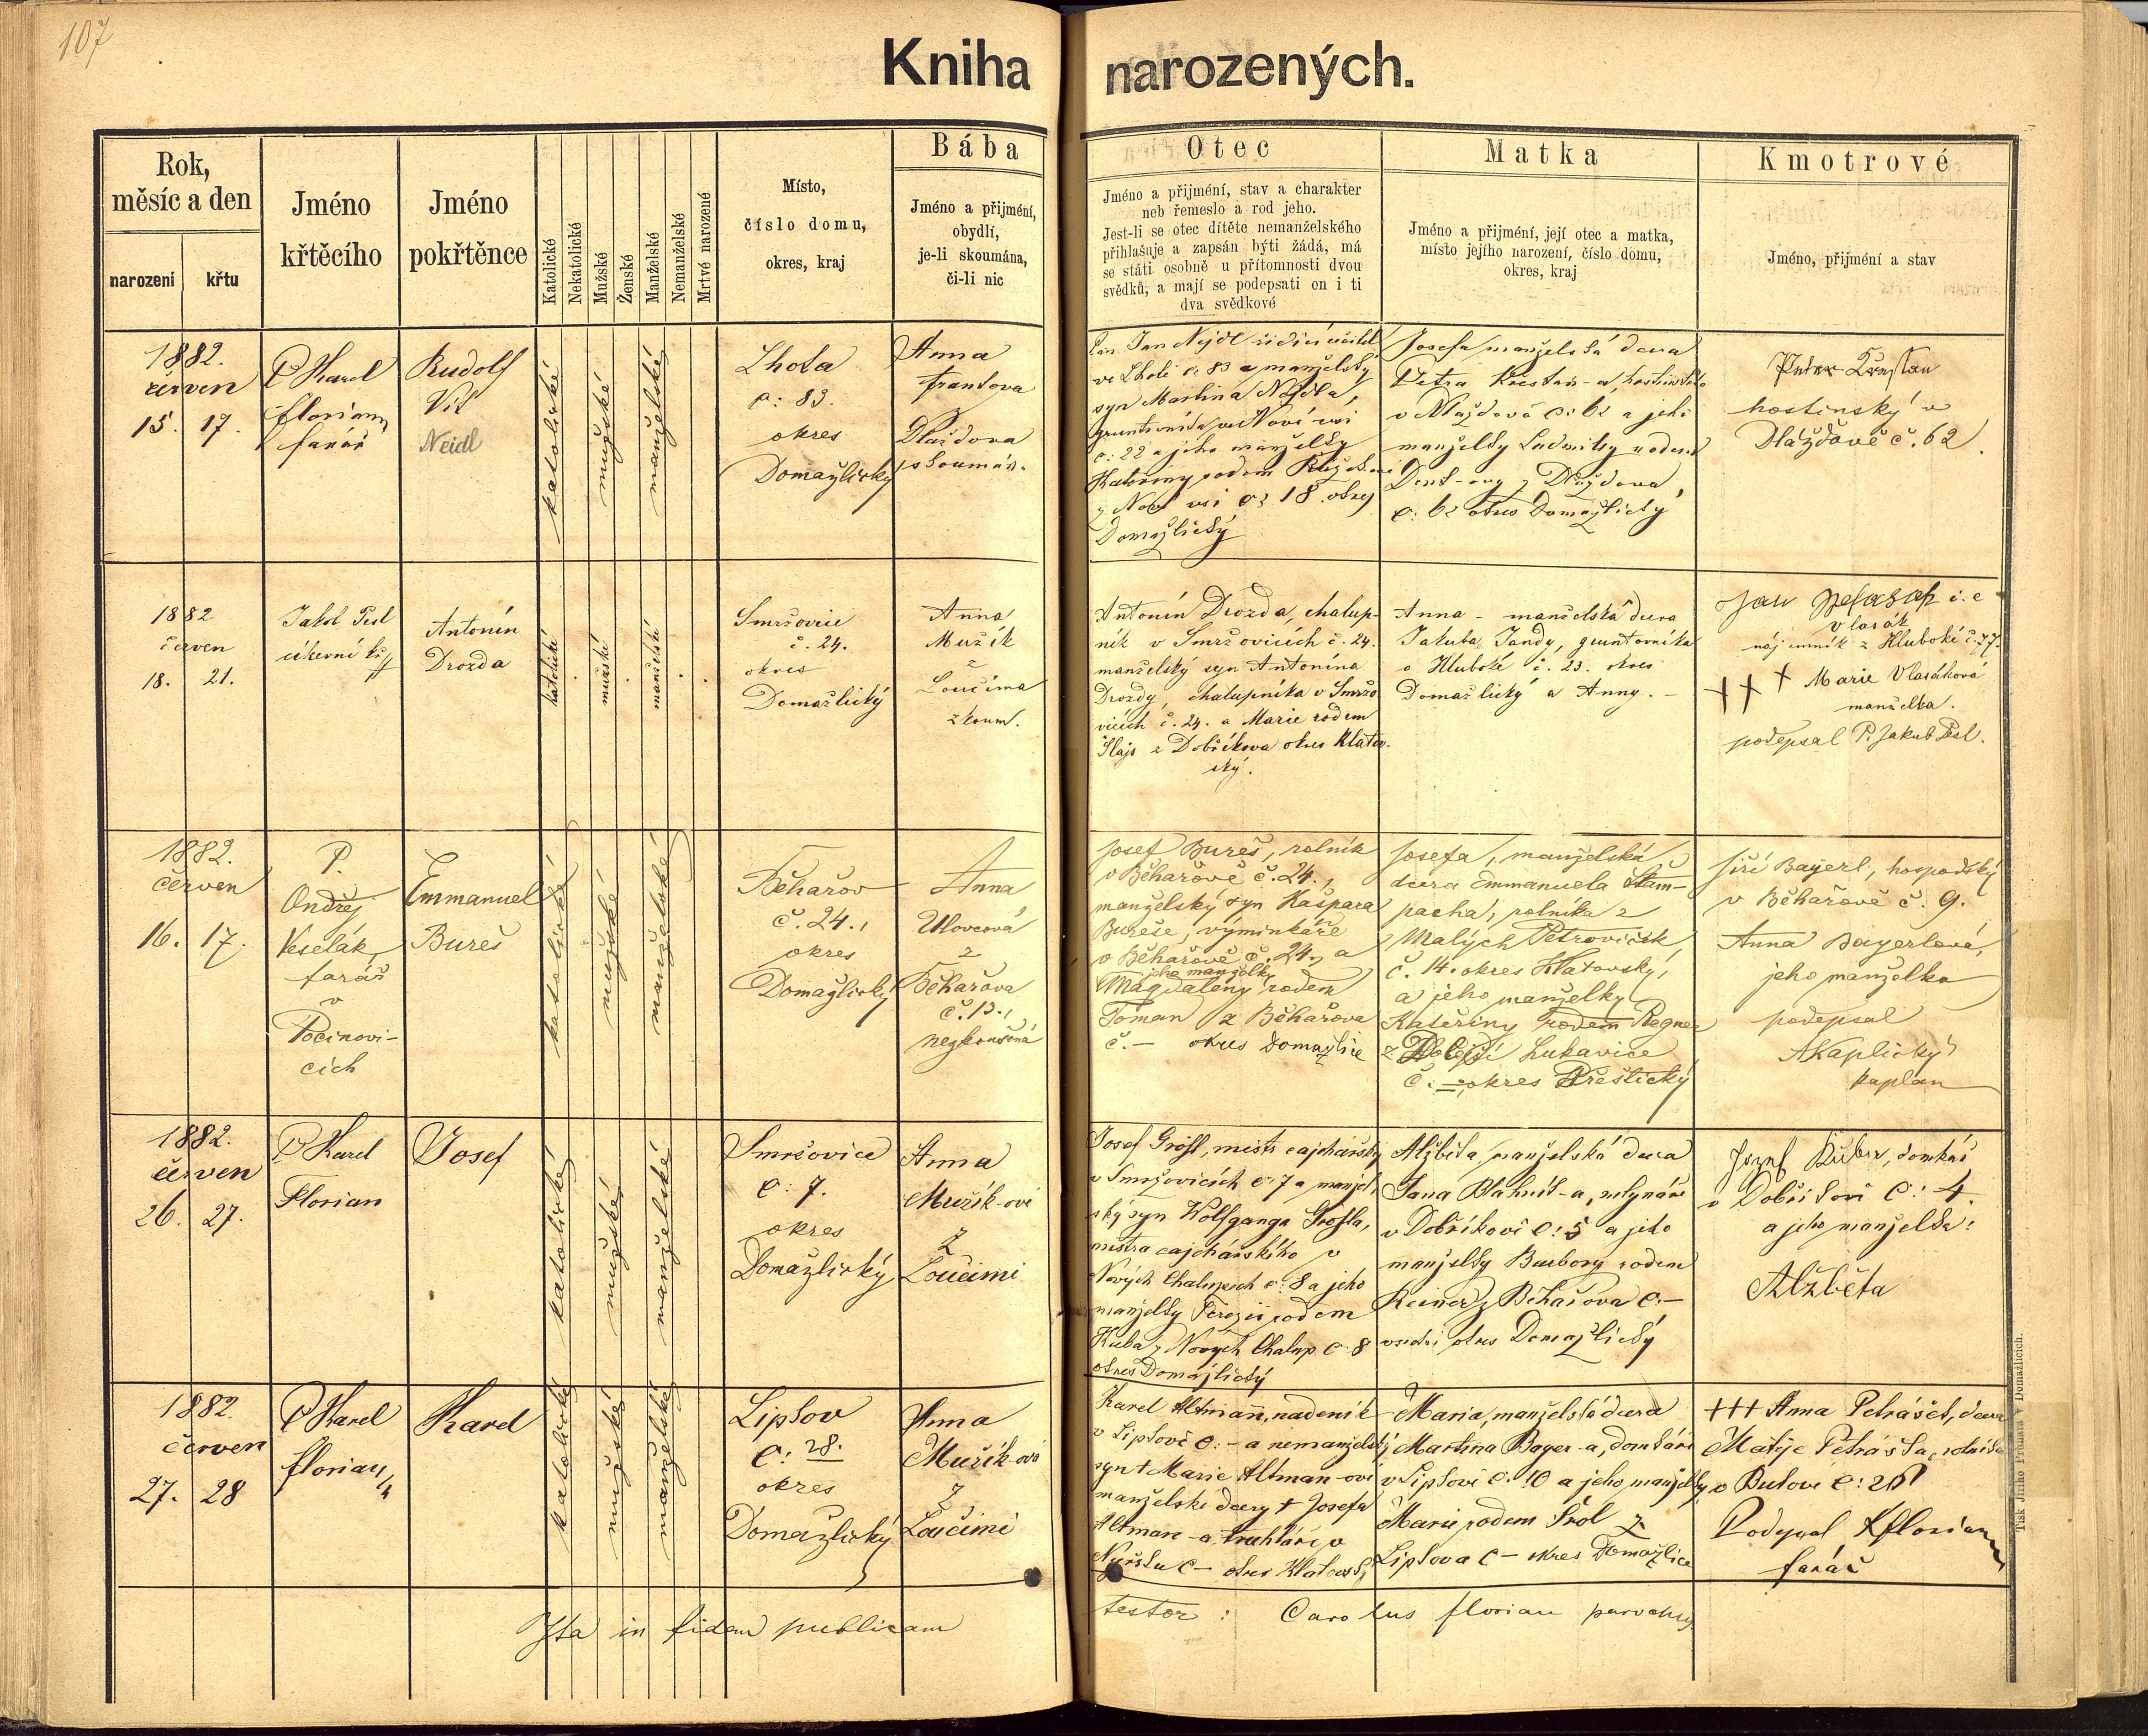 107
Kniha narozených.
Rok,
měsíc a den
narození
křtu
Jméno
křtěcího
Jméno
pokřtěnce
Katolické
Nekatolické
Mužské
Ženské
Manželské
Nemanželské
Mrtvé narozené
Místo,
číslo domu,
okres, kraj
Bába
Jméno a přijmění,
obydlí,
je-li skoumána,
či-li nic
Otec
Jméno a přijmění, stav a charakter
neb řemeslo a rod jeho.
Jest-li se otec dítěte nemanželského
přihlašuje a zapsán býti žádá, má
se státi osobně u přítomnosti dvou
svědků, a mají se podepsati on i ti
dva svědkové
Matka
Jméno a přijmění, její otec a matka,
místo jejího narození, číslo domu,
okres, kraj
Kmotrové
Jméno, přijmění a stav
1882.
červen
15. 17.
P Karel
Florian
farář
Rudolf
Vít
Neidl
katolické
mužské
manželské
Lhota
č: 83.
okres
Domažlický
Anna
Frantova
Dlaždova
skoumán.
Pan Jan Nejdl řídící učitel
ve Lhotě č: 83 a manželský
syn Martina Nejdla,
gruntovníka v Nové vsi
č: 22 a jeho manželky
Kateřiny rodem
z Nové vsi č: 18. okres
Domažlický
Josefa manželská dcera
Petra Křesťan-a, hostinského
v Dlaždově č: 62 a jeho
manželky Ludmily rodem
z Dlaždova,
č: 62 okres Domažlický
Peter Křesťan
hostinský v
Dlážďově č. 62.
1882
červen
18. 21.
Jakob Pesl
církevní kř.
Antonín
Drozda
katolické
mužské
manželské
Smržovice
č. 24.
okres
Domažlický
Anna
Mužík
z
Loučima
zkoum.
Antonín Drozda, chalup-
ník v Smržovicích č. 24.
manželský syn Antonína
Drozdy, chalupníka v Smržo
vicích č. 24. a Marie rodem
Šlajs z Dobříkova okres Klatov.
ský.
Anna - manželská dcera
Jakuba Jandy, gruntovníka
v Hluboké č. 23. okres
Domažlický a Anny. -
Jan i. e
Vlasák
nájemník z Hluboké č. 77.
+++ Marie Vlasáková
manželka.
podepsal P. Jakub Pesl.
1882.
červen
16. 17.
P.
Ondřej
Veselák,
farář
v
Počinovi-
cích
Emmanuel
Bureš
katolické
mužské
manželské
Běhařov
č. 24.,
okres
Domažlický
Anna
Ulovcová
z
Běhařova
č. 13.,
nezkoušená
Josef Bureš, rolník
v Běhařově č. 24.,
manželský syn Kašpara
Bureše, výminkáře
v Běhařově č. 24., a
jeho manželky
Magdaleny rodem
Toman z Běhařova
č. — okres Domažlice
Josefa, manželská
dcera Emmanuela Štam-
pacha, rolníka z
Malých Petroviček,
č. 14. okres Klatovský,
a jeho manželky
Kateřiny rodem Regner
z Dolejší Lukavice
č. — okres Přeštický
Jiří Bayerl, hospodský
v Běhařově č. 9.
Anna Bayerlová,
jeho manželka
podepsal
AKaplický
kaplan
1882.
červen
26. 27.
P Karel
Florian
Josef
katolické
mužské
manželské
Smržovice
č: 7.
okres
Domažlický
Anna
Mužík-ová
z
Loučimi
Josef Grössl, mistr cajchářský
v Smržovicích č: 7 a manžel-
ský syn Wolfganga Grössla,
mistra cajchářského v
Nových Chalupách č: 8 a jeho
manželky Terezie rodem
Kuba z Nových Chalup č: 8
okres Domažlický
Alžběta, manželská dcera
Jana Blahník-a, mlynáře
v Dobříkově č: 5 a jeho
manželky Barbory rodem
Reiner z Běhařova č: —
okres Domažlický
Josef, domkář
v Dobříkově č: 4.
a jeho manželka:
Alžběta
1882.
červen
27. 28
P Karel
Florian
Karel
katolické
mužské
manželské
Lipkov
č: 28.
okres
Domažlický
Anna
Mužík-ová
z
Loučimi
Karel Altmann, nadeník
v Lipkově č: — a nemanželský
syn + Marie Altman-ové
manželské dcery + Josefa
Altman-a truhláře v
Nýrsku č — okres Klatovský
Maria, manželská dcera
Martina Bayer-a, domkáře
v Lipkově č: 10 a jeho manželky
Marie rodem Šrol z
Lipkova č — okres Domažlice
+++ Anna Petrášek, dcera
Matěje Petráška, rolníka
v Bukově č: 21
Podepsal KFlorian
farář
Ita in fidem publicam
testor: Carolus Florian parochus
Tisk Jiřího Prunara v Domažlicích.